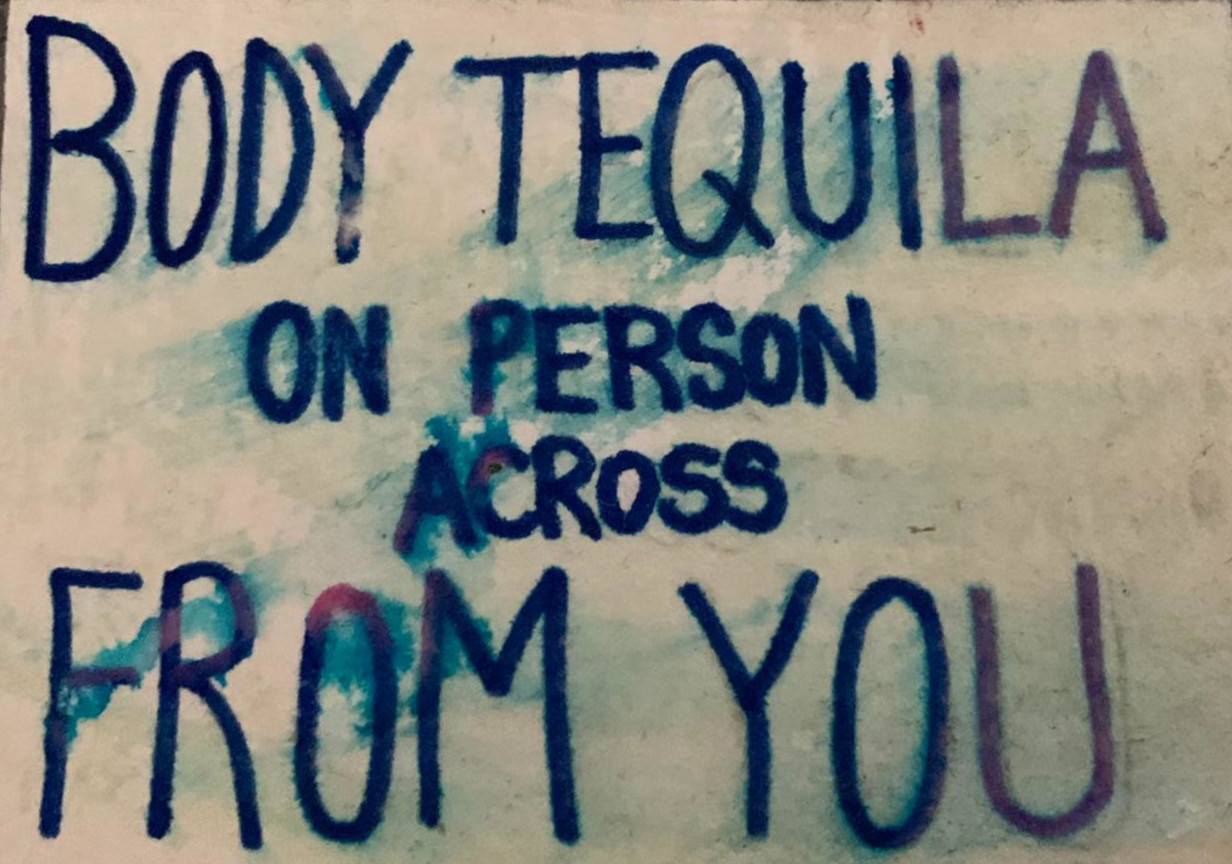 BODY TEQUILA
ON PERSON
ACROSS
FROM YOU